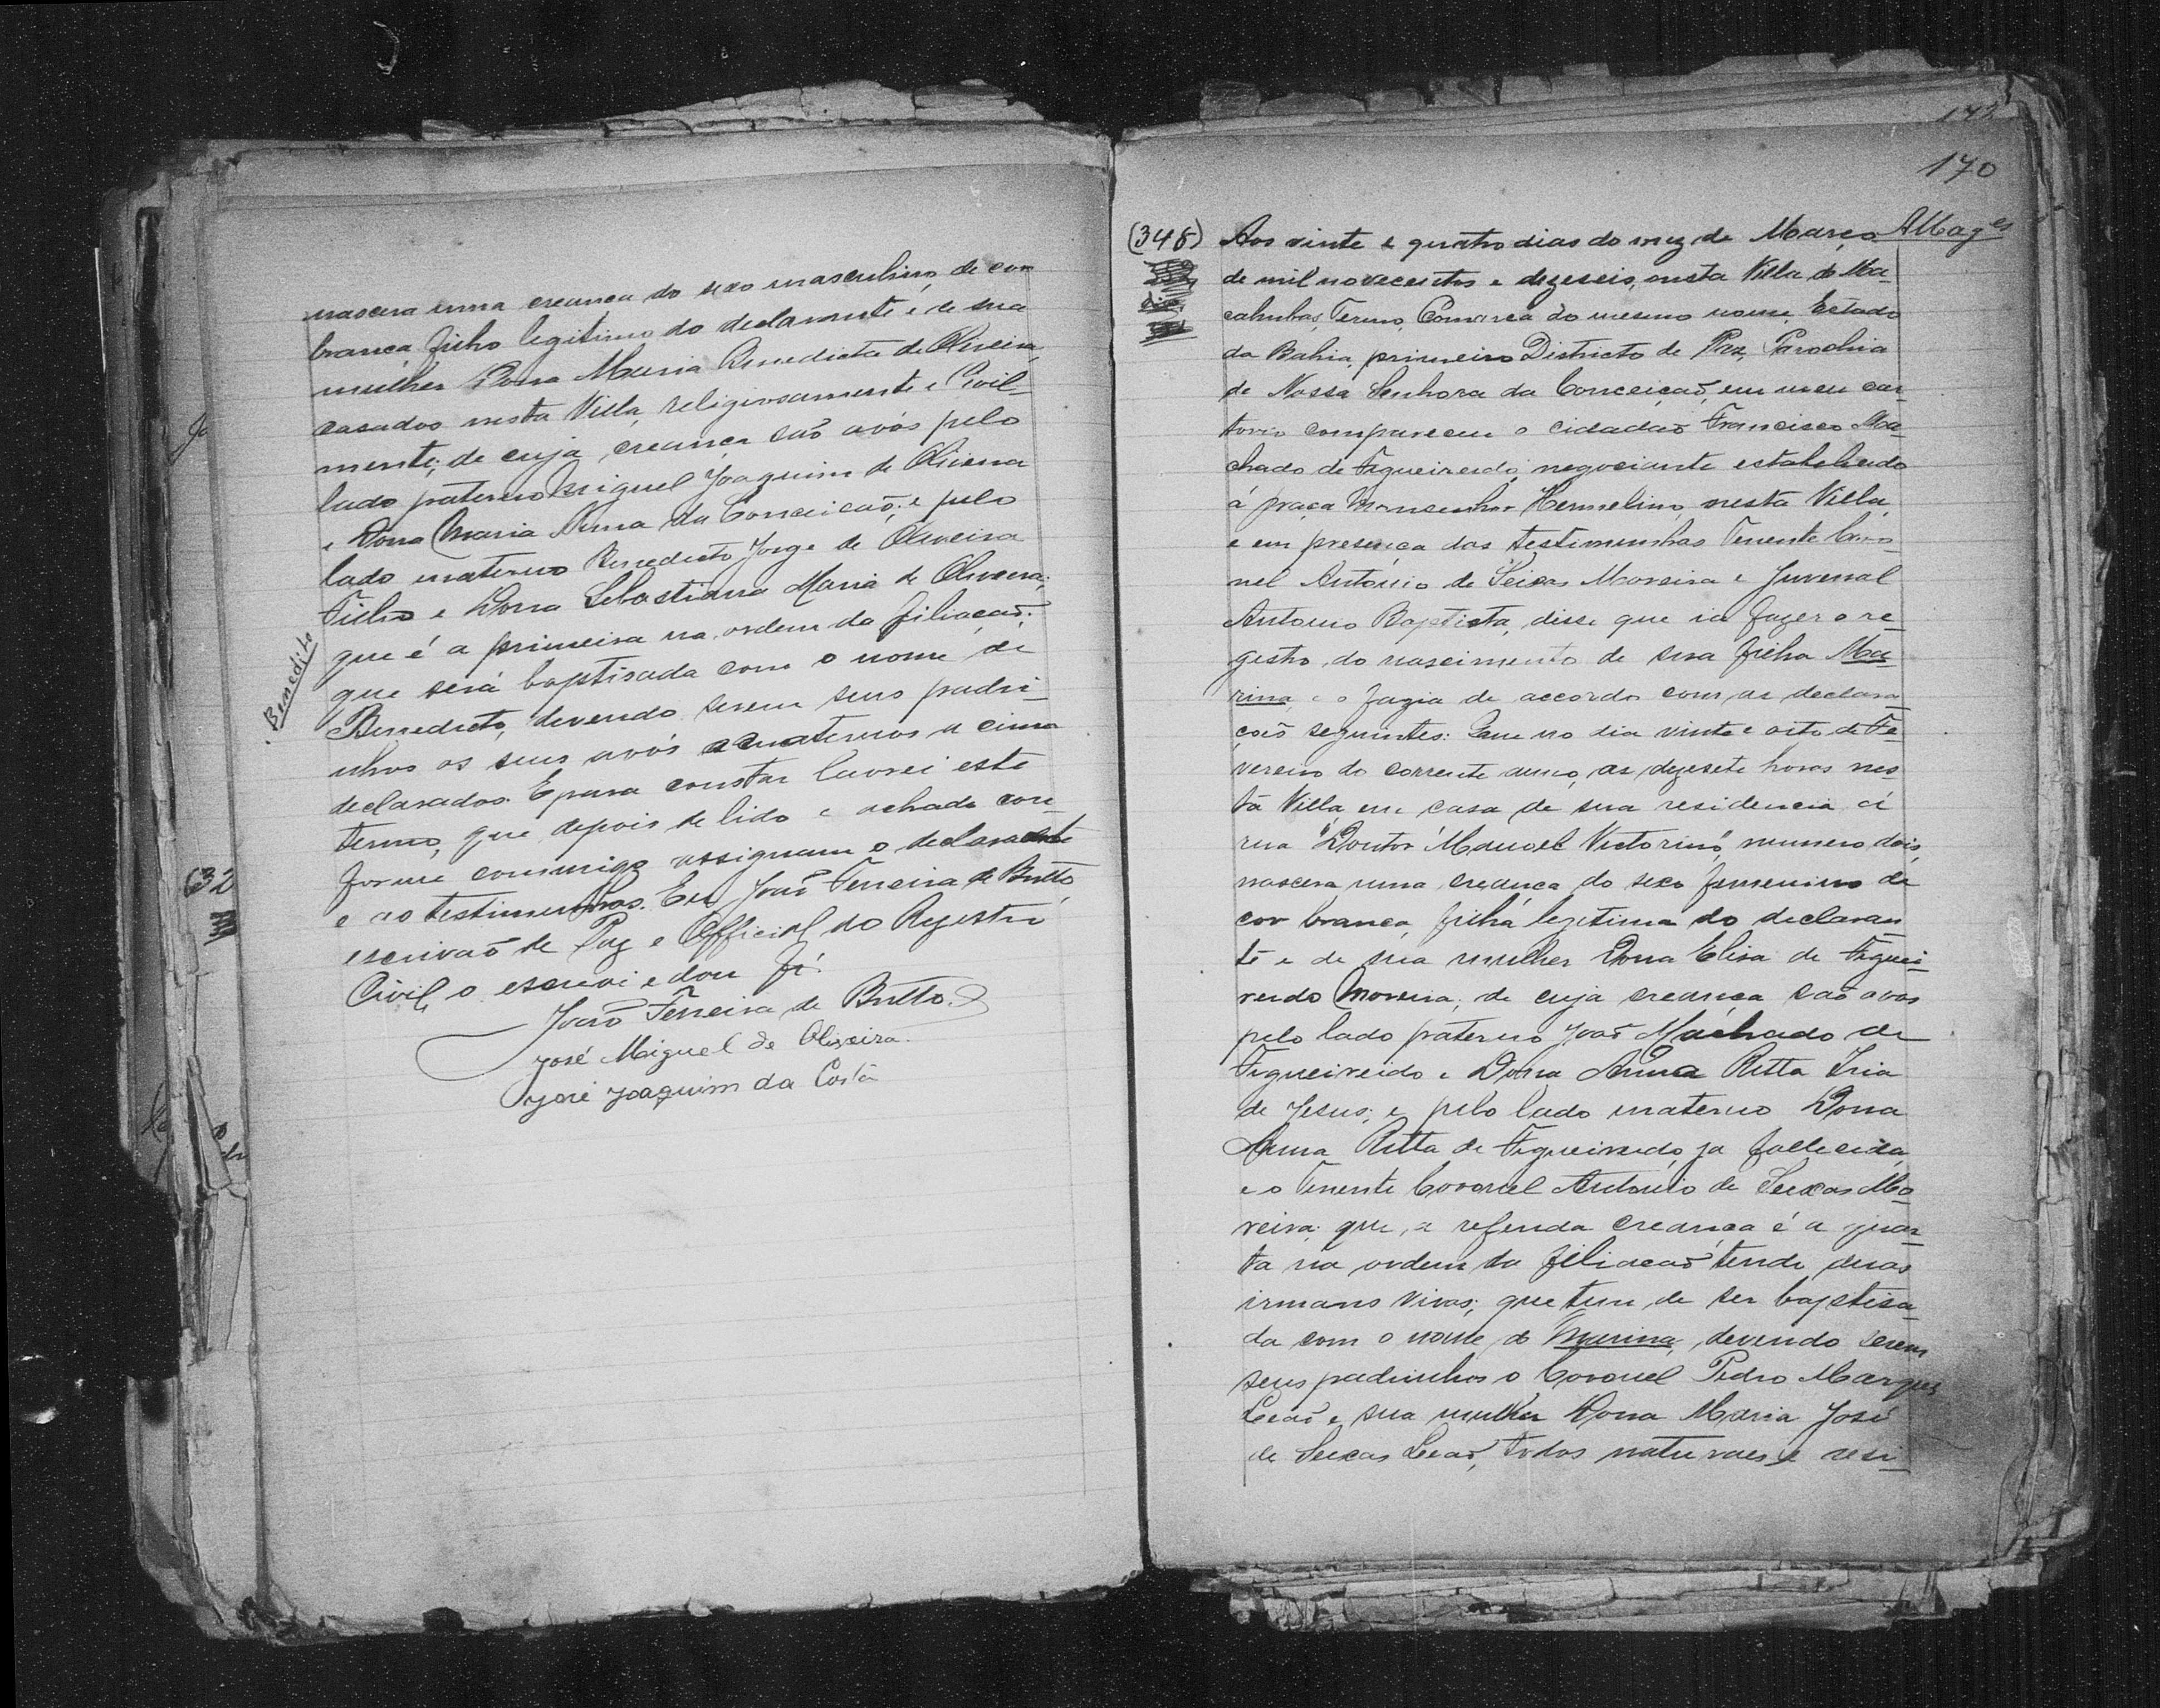 nascera uma creança do sexo masculino, de cor
branca, filho legitimo do declarante e de sua
mulher Dona Maria Benedicta de Oliveira,
casados nesta Villa, religiosamente e Civil-
mente; de cuja creança são avós pelo
lado paterno Miguel Joaquim de Oliveira
e Dona Maria Anna da Conceição; e pelo
lado materno Benedicto Jorge de Oliveira
Filho e Dona Sebastiana Maria de Oliveira;
que é a primeira na ordem da filiação;
que será baptisada com o nome de
Benedicto, devendo serem seus padri-
nhos os seus avós maternos a cima
declarados. E para constar lavrei este
termo, que depois de lido e achado con-
forme commigo assignam o declarante
e as testimunhas. Eu João Ferreira de Britto,
escrivão de Paz e Official do Registro
Civil, o escrevi e dou fé.
João Ferreira de Britto.
José Miguel de Oliveira.
José Joaquim da Costa
Benedito
632
173
170
(348) Aos vinte e quatro dias do mez de Março AMag.es
de mil novecentos e dezeseis, nesta Villa de Ma-
cahubas, Termo, Comarca do mesmo nome, Estado
da Bahia, primeiro Districto de Paz, Parochia
de Nossa Senhora da Conceição, em meu car-
torio compareceu o cidadão Francisco Ma-
chado de Figueiredo, negociante estabelecido
á praça Monsenhor Hermelino, nesta Villa,
e em presença das testimunhas Tenente Coro-
nel Antonio de Seixas Moreira e Juvenal
Antonio Baptista, disse que ia fazer o re-
gestro do nascimento de sua filha Ma-
rina, e o fazia de accordo com as declara-
ções seguintes: Que no dia vinte e oito de Fe-
vereiro do corrente anno, as dezesete horas nes-
ta Villa, em casa de sua residencia á
rua "Doutor Manoel Victorino", numero dois,
nascera uma creança do sexo femenino de
cor branca, filha legitima do declaran-
te e de sua mulher Dona Elisa de Figuei-
redo Moreira; de cuja creança são avós
pelo lado paterno João Machado de
Figueiredo e Dona Anna Ritta Iria
de Jesus; e pelo lado materno Dona
Anna Ritta de Figueiredo, ja fallecida,
e o Tenente Coronel Antonio de Seixas Mo-
reira; que, a referida creança é a quar-
ta na ordem da filiação tendo duas
irmans vivas; que tem de ser baptisa-
da com o nome de Marina, devendo serem
seus padrinhos o Coronel Pedro Marques
Leão e sua mulher Dona Maria José
de Seixas Leão, todos naturaes e resi-